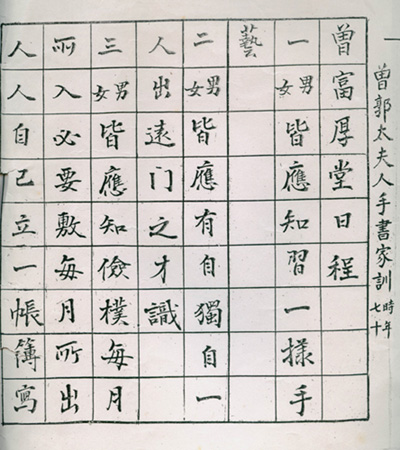 一 曾郭太夫人手書家訓 時年七十
曾富厚堂日程
一男女皆應知習一樣手
藝
二男女皆應有自獨自一
人出遠门之才識
三男女皆應知儉樸每月
所入必要敷每月所出
人人自己立一帳簿寫